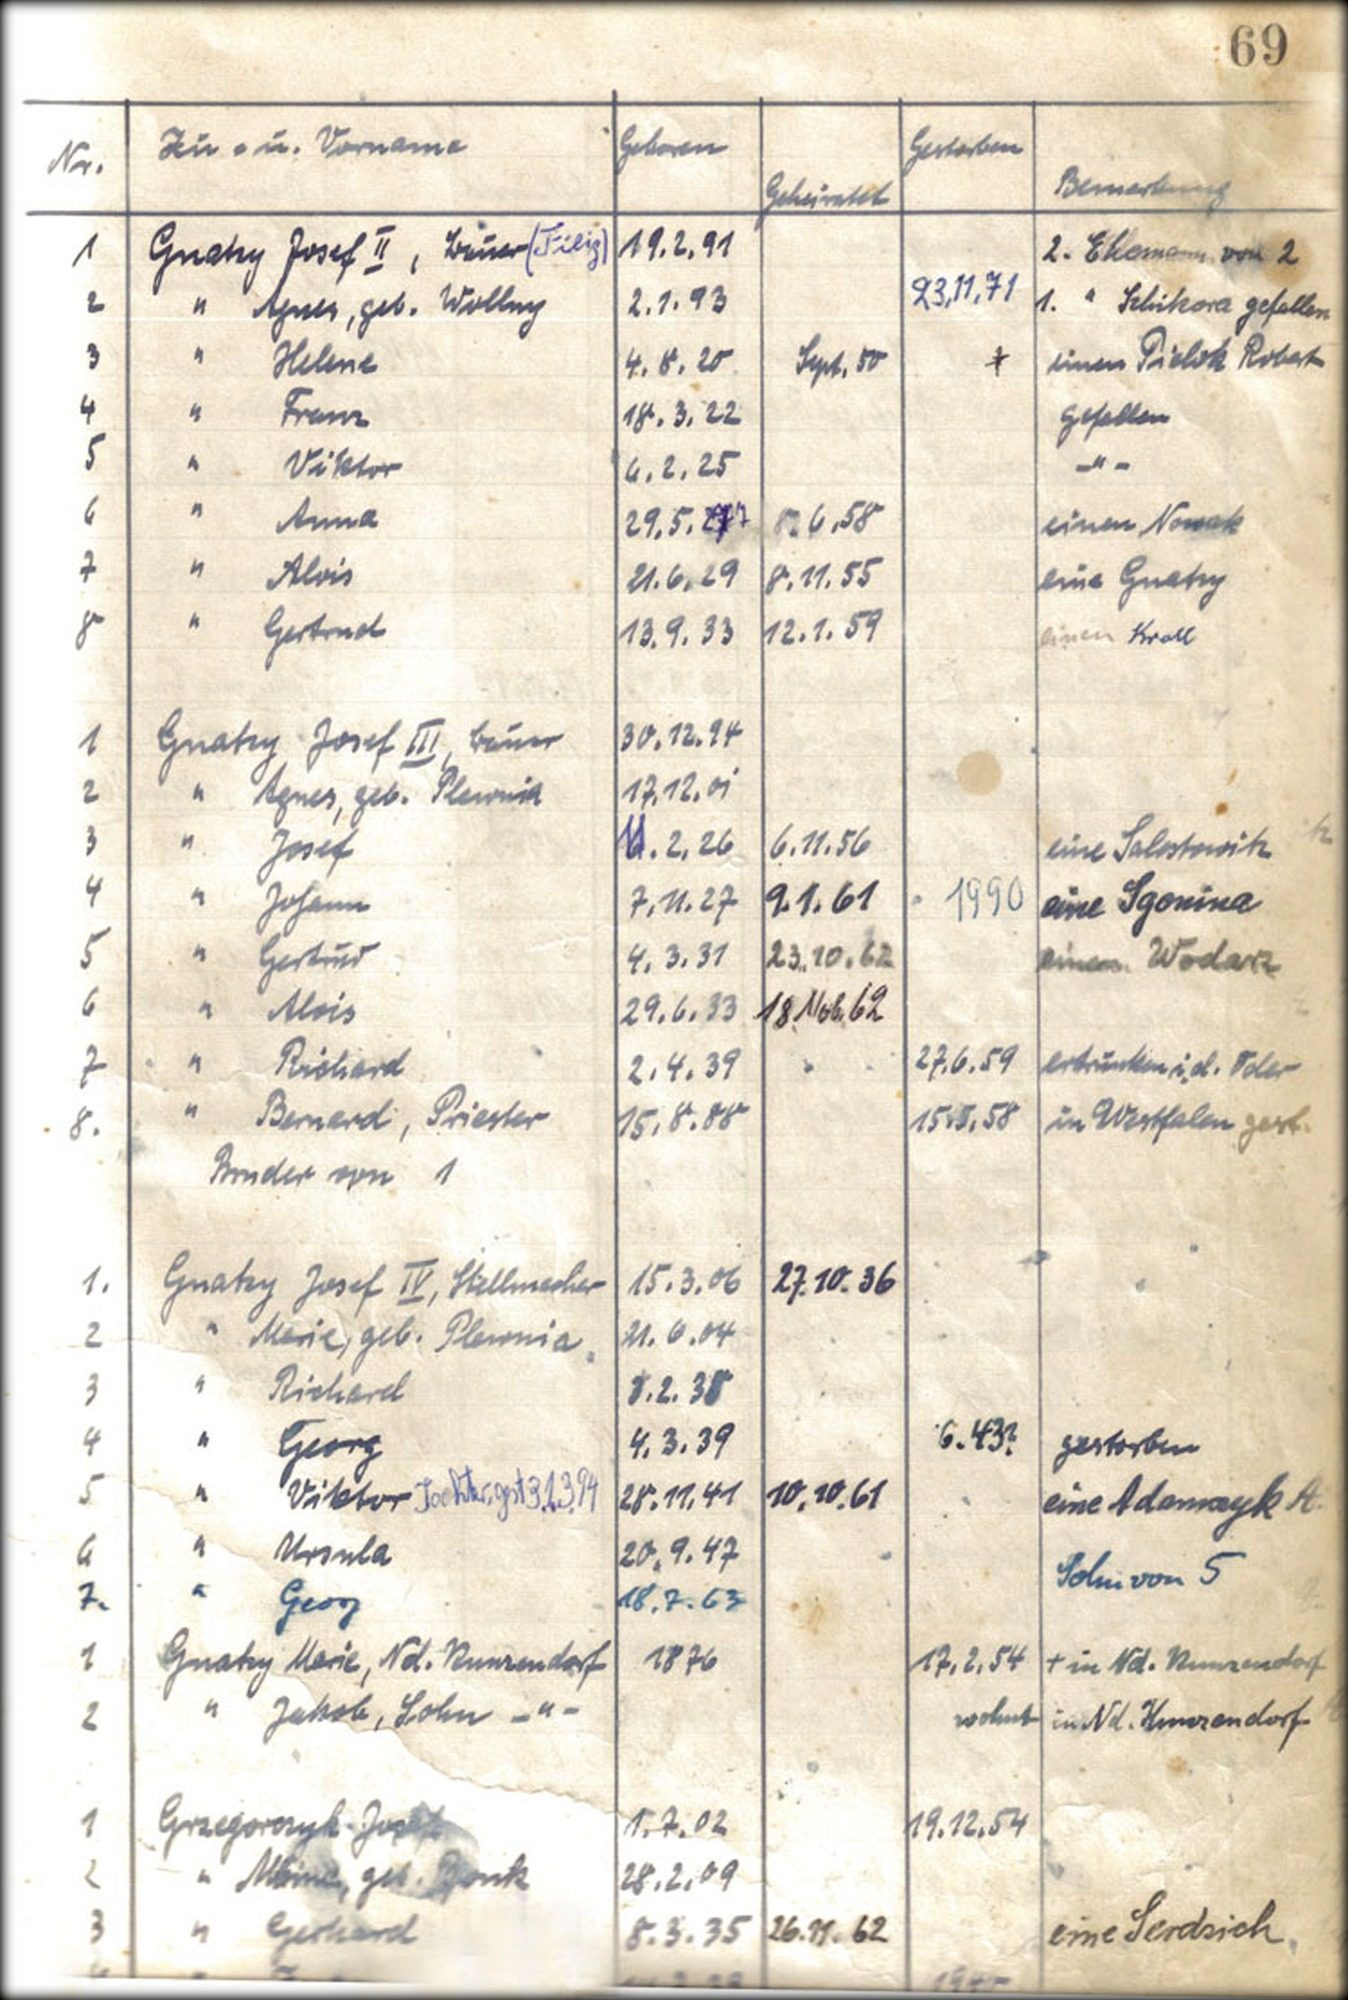 69
Nr. Zu- u. Vorname Geboren Geheiratet Gestorben Bemerkung
1 Gnatzy Josef II, Bauer (Filiz) 19.2.91 2. Ehemann von 2
2 " Agnes, geb. Wollny 2.1.93 23,11,71 1. " Schikora gefallen
3 " Helene 4.8.20 Sept. 50 + einen Pielok Robert
4 " Franz 18.3.22 gefallen
5 " Viktor 6.2.25 -"-
6 " Anna 29.5.27 8.6.58 einen Nowak
7 " Alois 21.6.29 8.11.55 eine Gnatzy
8 " Gertrud 13.9.33 12.1.59 einen Kroll
1 Gnatzy Josef III, Bauer 30.12.94
2 " Agnes, geb. Plewnia 17.12.01
3 " Josef 11.2.26 6.11.56 eine Salostowitz
4 " Johann 7.11.27 9.1.61 1990 eine Sgonina
5 " Gertrud 4.3.31 23.10.62 einen Wodarz
6 " Alois 29.6.33 18.Nob.62
7 " Richard 2.4.39 27.6.59 ertrunken i.d. Oder
8. " Bernard, Priester 15.8.88 15.5.58 in Westfalen gest.
Bruder von 1
1. Gnatzy Josef IV, Stellmacher 15.3.06 27.10.36
2 " Marie, geb. Plewnia 21.6.04
3 " Richard 8.2.38
4 " Georg 4.3.39 6.43? gestorben
5 " Viktor 28.11.41 10.10.61 eine Adamczyk A.
6 " Ursula 20.9.47
7. " Georg 18.7.63 Sohn von 5
1 Gnatzy Marie, Nd. Kunzendorf 1876 17.2.54 + in Nd. Kunzendorf
2 " Jakob, Sohn -"- wohnt in Nd. Kunzendorf
1 Grzegorczyk Josef 1.7.02 19.12.54
2 " geb. Bonk 28.2.09
3 " Gerhard 8.3.35 26.11.62 eine Serdzich